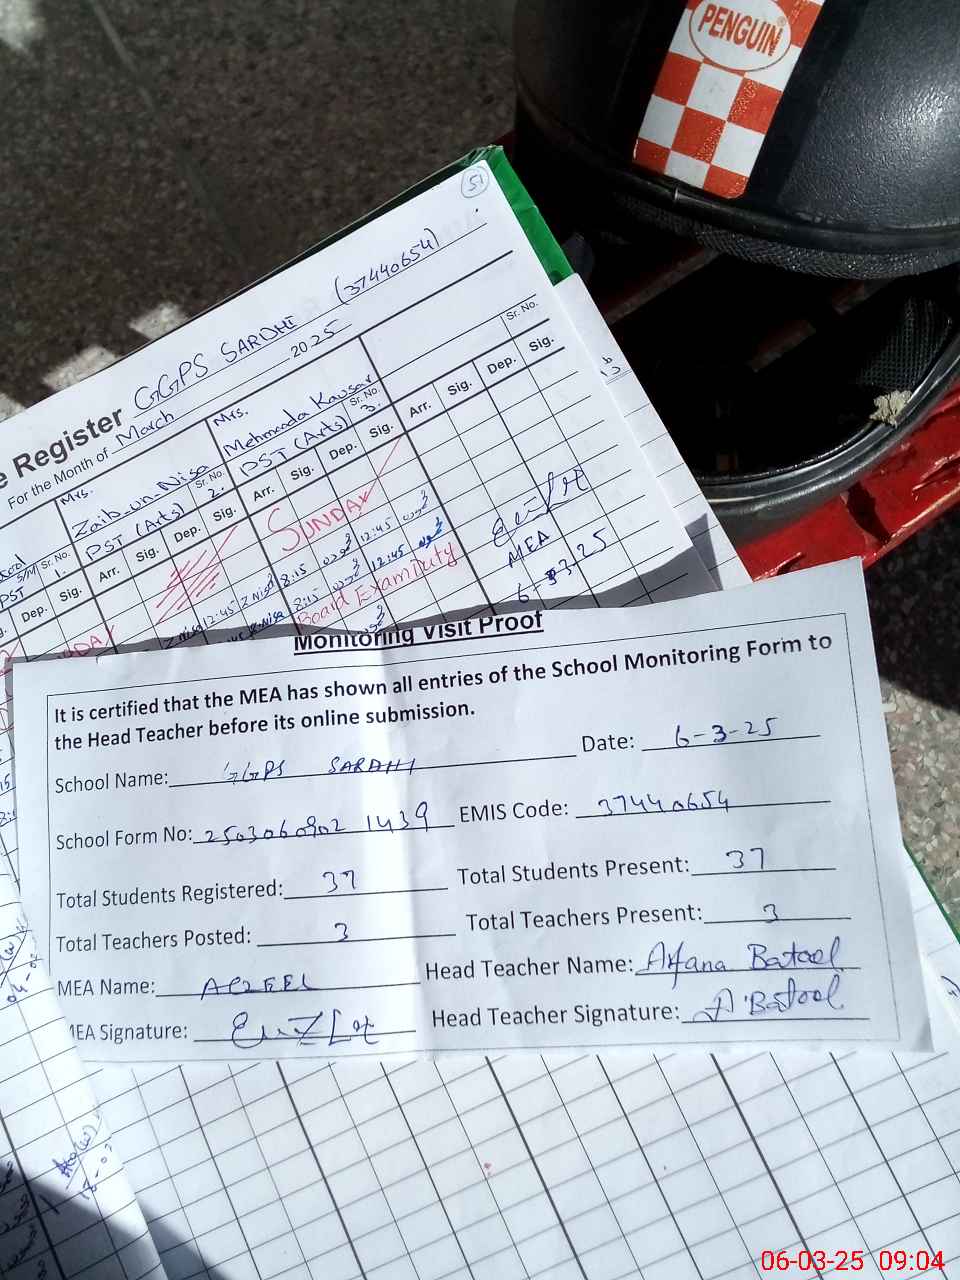 PENGUIN
51
e Register GGPS SARDHI (37440654)
For the Month of March 2025
Mrs.
Mrs.
Zaib-un-Nisa
Mehmooda Kausar
PST (Arts)
Sr. No.
2.
PST (Arts)
Sr. No.
3.
Sr. No.
S/M
PST
Sr. No.
1.
Dep. Sig. Arr. Sig. Dep. Sig. Arr. Sig. Dep. Sig. Arr. Sig. Dep. Sig.
SUNDAY
8:15 12:45
12:45 8:15 12:45
Board Exam Duty
MEA
6-3-25
Monitoring Visit Proof
It is certified that the MEA has shown all entries of the School Monitoring Form to
the Head Teacher before its online submission.
School Name: GGPS SARDHI Date: 6-3-25
School Form No: 2503060902 1439 EMIS Code: 37440654
Total Students Registered: 37 Total Students Present: 37
Total Teachers Posted: 3 Total Teachers Present: 3
MEA Name: Head Teacher Name: Arfana Batool
MEA Signature: Head Teacher Signature: A.Batool
06-03-25 09:04